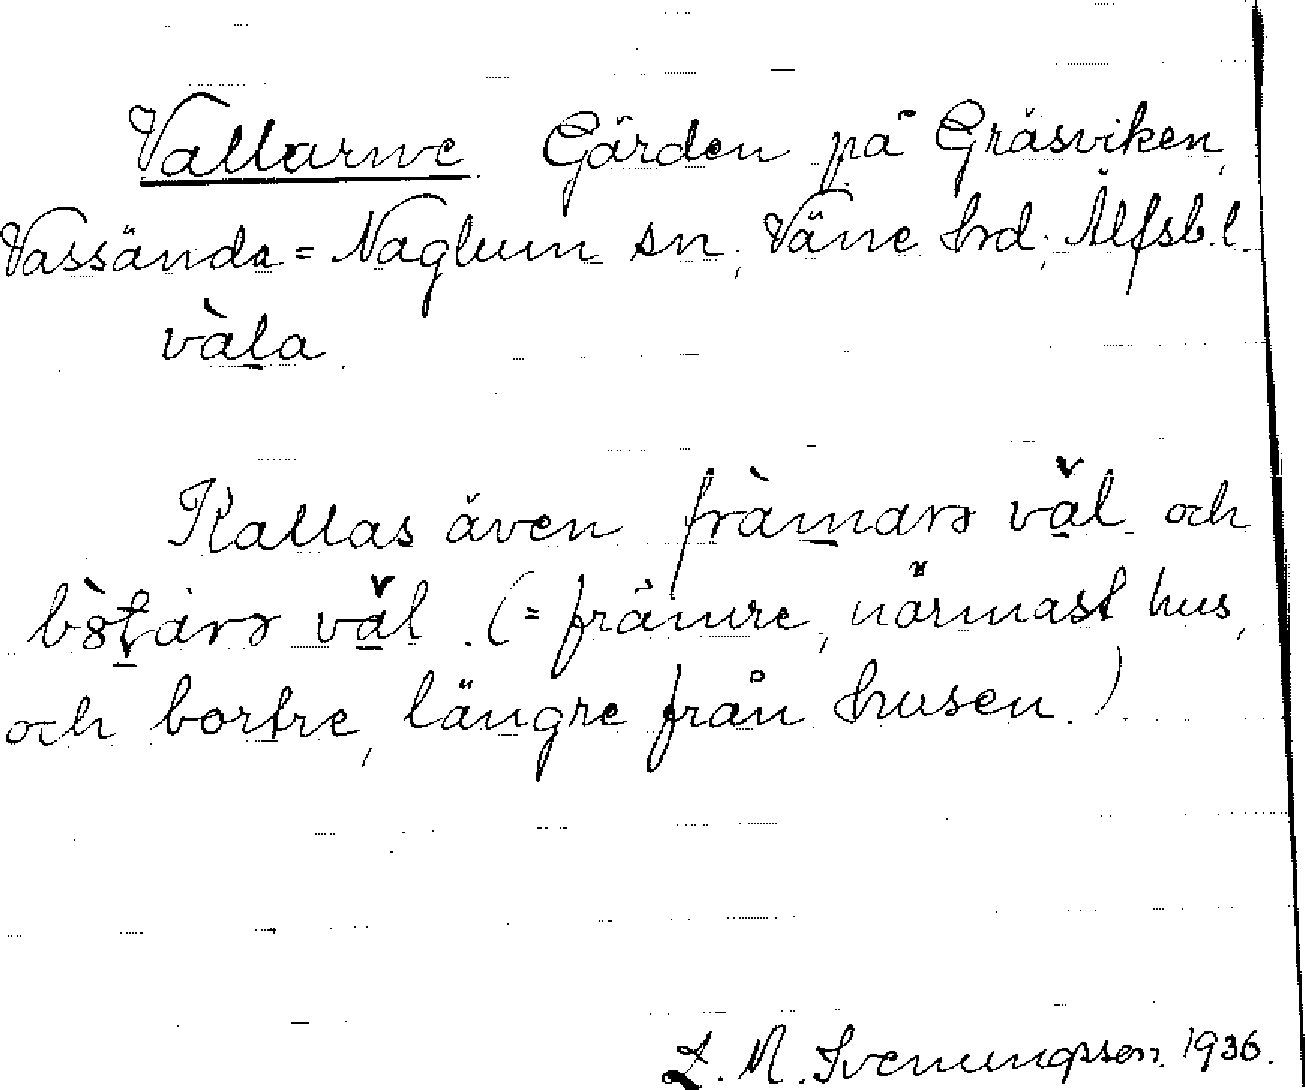 Vallarne Gärden på Gräsviken,
Vassända = Naglum sn, Väne hrd, Älfsb. l.
vàla
Kallas även fràmars väl och
väl. (= främre, närmast hus,
och bortre, längre från husen.)
L. M. Svenungsson 1936.